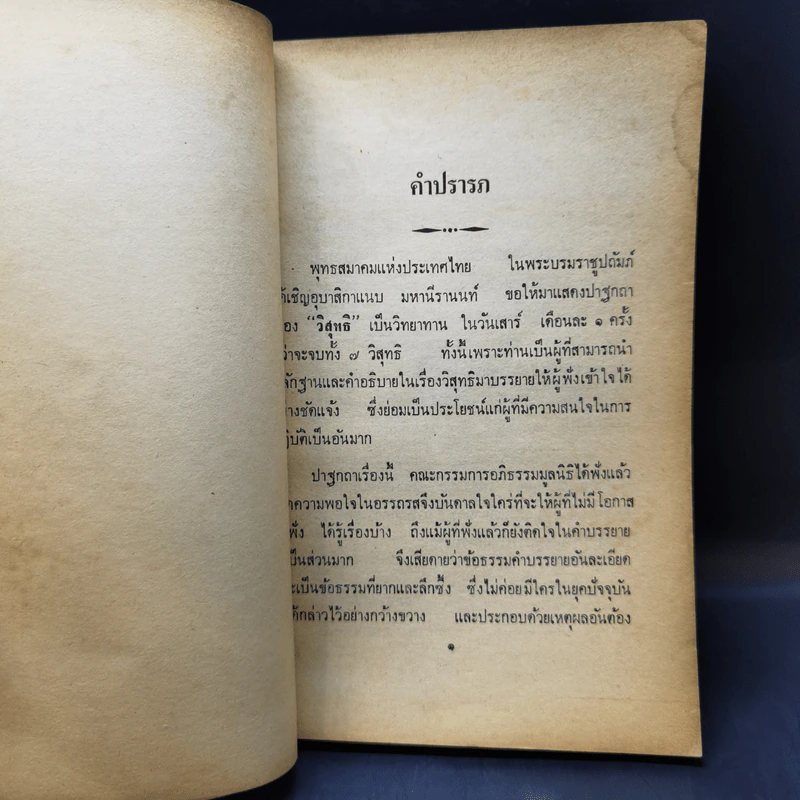 คำปรารภ
พุทธสมาคมแห่งประเทศไทย ในพระบรมราชูปถัมภ์
ได้เชิญอุบาสิกาแนบ มหานีรานนท์ ขอให้มาแสดงปาฐกถา
เรื่อง “วิสุทธิ” เป็นวิทยาทาน ในวันเสาร์ เดือนละ ๑ ครั้ง
ว่าจะจบทั้ง ๗ วิสุทธิ ทั้งนี้เพราะท่านเป็นผู้ที่สามารถนำ
หลักฐานและคำอธิบายในเรื่องวิสุทธิมาบรรยายให้ผู้ฟังเข้าใจได้
อย่างชัดแจ้ง ซึ่งย่อมเป็นประโยชน์แก่ผู้ที่มีความสนใจในการ
ปฏิบัติเป็นอันมาก
ปาฐกถาเรื่องนี้ คณะกรรมการอภิธรรมมูลนิธิได้ฟังแล้ว
ความพอใจในอรรถรสจึงบันดาลใจใคร่ที่จะให้ผู้ที่ไม่มีโอกาส
ฟัง ได้รู้เรื่องบ้าง ถึงแม้ผู้ที่ฟังแล้วก็ยังติดใจในคำบรรยาย
เป็นส่วนมาก จึงเสียดายว่าข้อธรรมคำบรรยายอันละเอียด
และเป็นข้อธรรมที่ยากและลึกซึ้ง ซึ่งไม่ค่อยมีใครในยุคปัจจุบัน
ได้กล่าวไว้อย่างกว้างขวาง และประกอบด้วยเหตุผลอันต้อง
๑